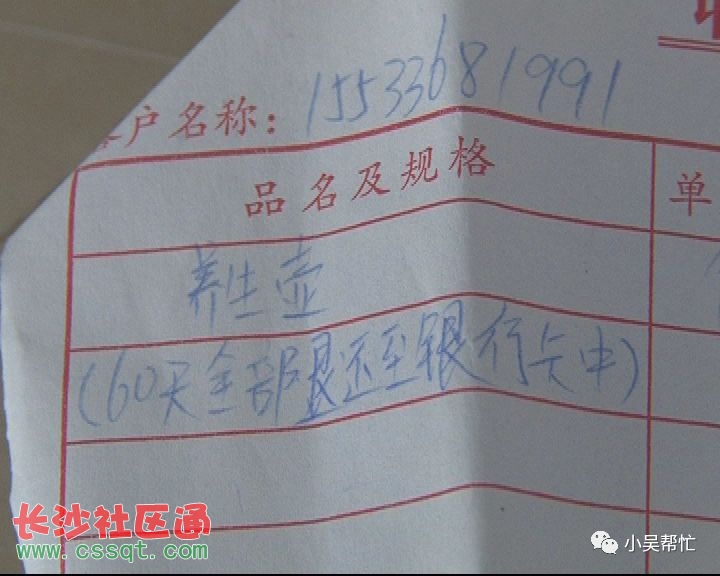 客户名称: 15533681991
品名及规格 单
养生壶
(60天全部退还至银行卡中)
长沙社区通
www.cssqt.com
小吴帮忙